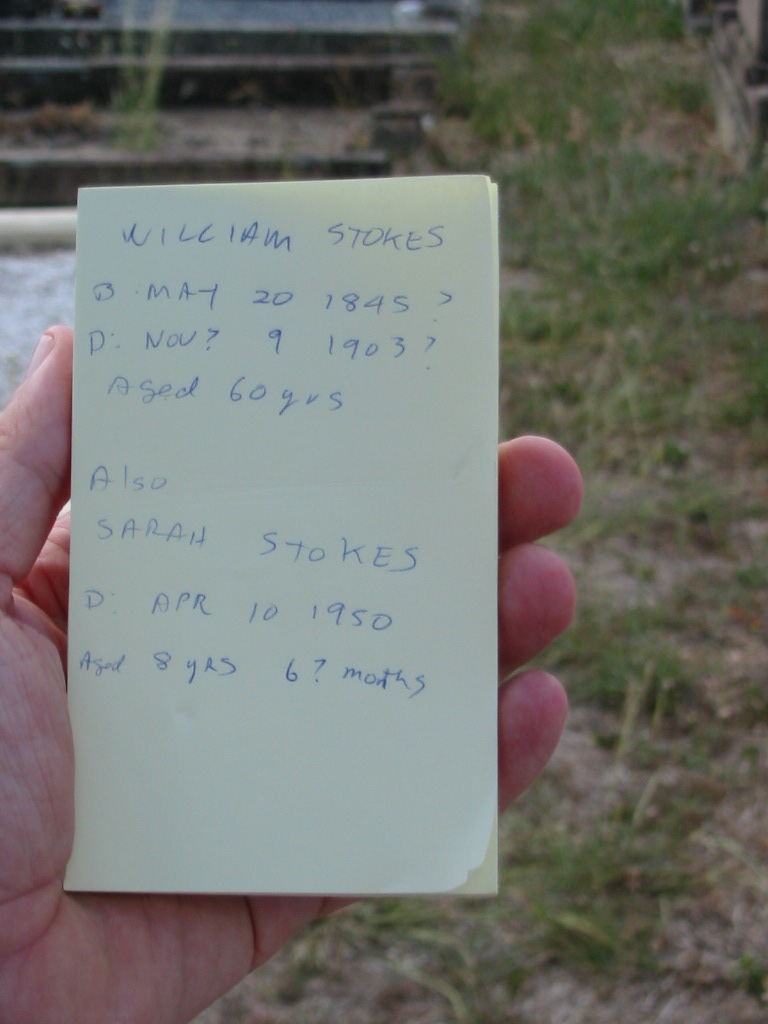 WILLIAM STOKES
B MAY 20 1845 ?
D: NOV? 9 1903?
Aged 60 yrs
Also
SARAH STOKES
D: APR 10 1950
Aged 8 yRS 6? months